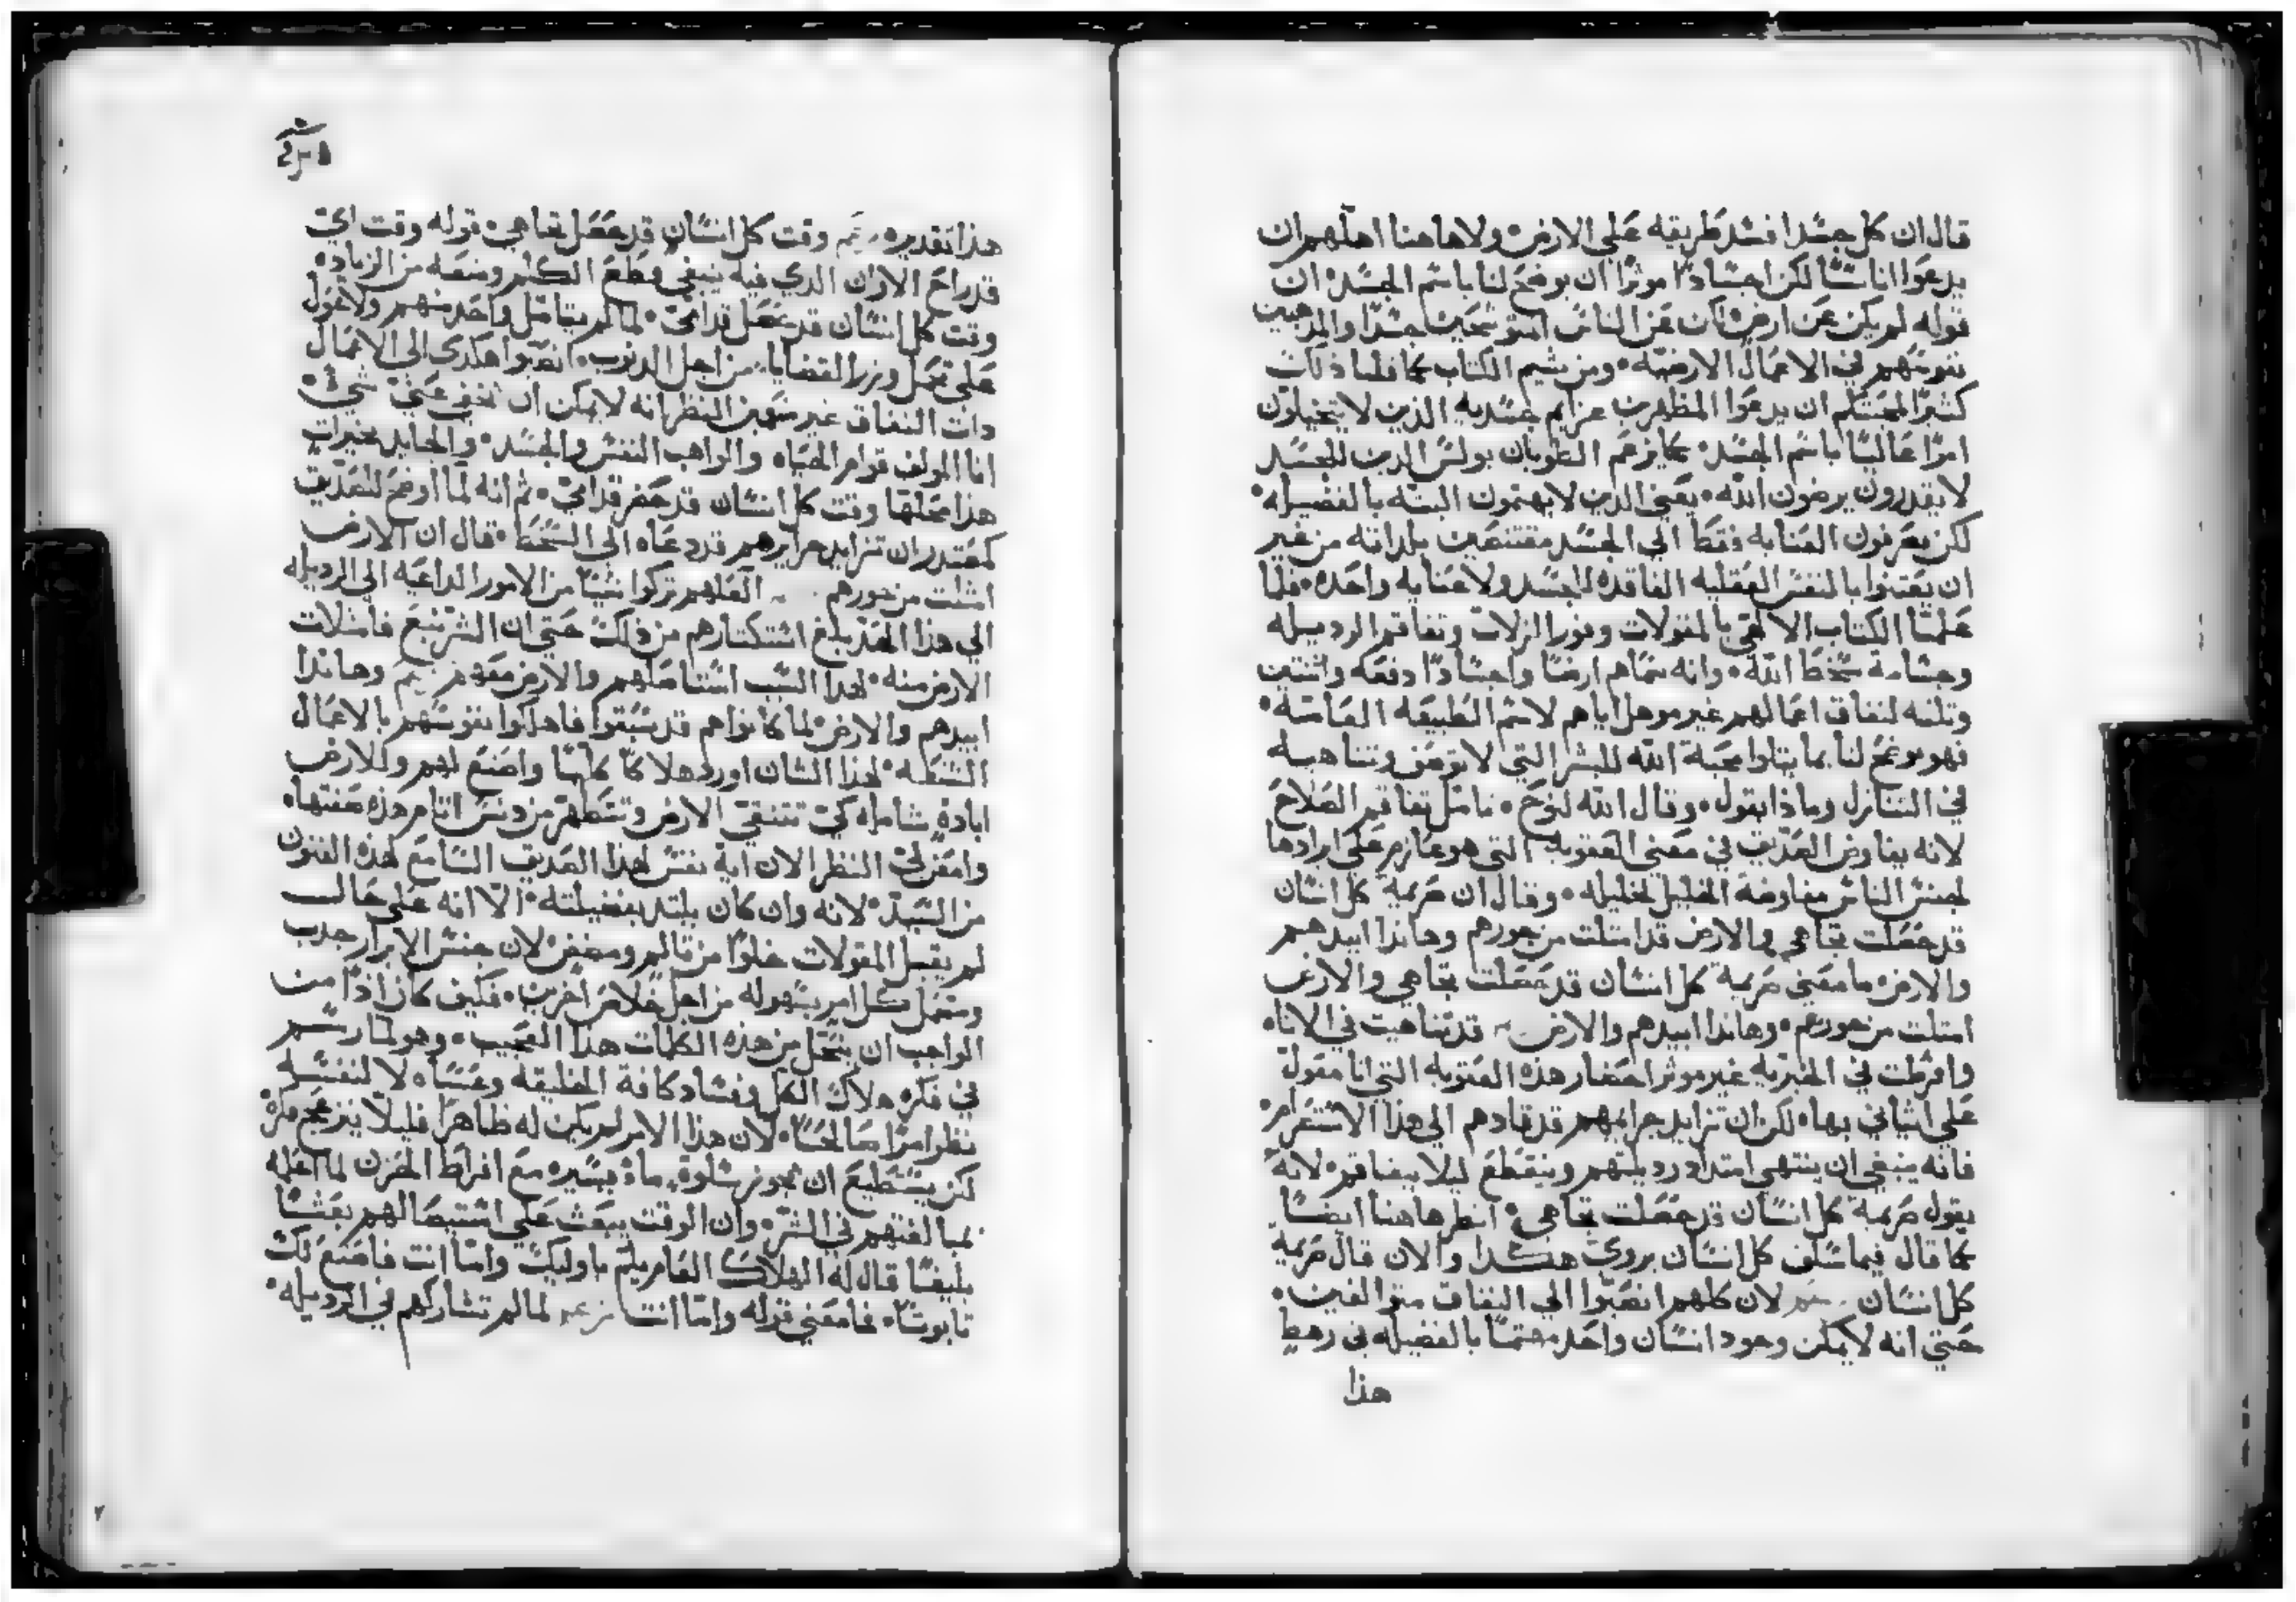 قال ان كل جسد افسد طريقه على الارض ولا هاهنا اهلهم ان
يدعوا اناسًا لكن اجسادًا موثرًا ان يوضح لنا باسم الجسد ان
قوله لم يكن عن ارض كان عن الناس المتوشحين جسدًا والمذهبين
نفوسهم في الاعمال الارضيه ومن شيم الكتاب كما قلنا ذلك
كثيرًا لمحبتكم ان يدعوا المظهرين عزايم جسديه الذين لا يتخيلون
امرًا عاليًا باسم الجسد كما يزعم الطوبان بولس الذين للجسد
لا يقدرون يرضون الله يعني الذين لا يهتمون البته بالفضيله
لكن يصرفون العنايه فقط الي الجسد مقتنعين بلداته من غير
ان يعتنوا بالنفس العقليه الفاقده الجسد ولا عنايه واحده فلما
علمنا الكتاب الالهي بالمقولات وفور الزلات وتفاقم الرديله
وجسامة سخط الله وانه سماهم ارضًا واجسادًا دفعه واثنتين
وتلته لنفاق اعمالهم غير موهل اياهم لاسم الطبيعه العاميه
فهو يوضح لنا بما يتلوا محبة الله للبشر التي لا توصف وتناهيه
في التنازل وماذا يقول وقال الله لنوح تامل تفاقم الصلاح
لانه يفاوض الصديق في معني العقوبه التي هو عازم علي ايرادها
لجنس الناس مفاوضة الخليل لخليله وقال ان صريمة كل انسان
قد حصلت تجاهي والارض قد امتلت من جورهم وهانذا ابيدهم
والارض ما معني صريمة كل انسان قد حصلت تجاهي والارض
امتلت من جورهم وهانذا ابيدهم والارض قد تناهيت في الاناه
وافرطت في الخيريه غير موثر احضار هذه العقوبه التي انا مقول
علي اثياني بها لكن ان تزايد جرايمهم قد قادهم الي هذا الاستغرام
فانه ينبغي ان ينتهي امتداد رديلتهم وينقطع ليلا يتفاقم لانه
يقول صريمة كل انسان قد حصلت تجاهي انظر هاهنا ايضًا
كما قال فيما سلف كل انسان يروي هكدا والان قال صريمة
كل انسان لان كلهم انصبوا الي النفاق متوالفين
حتي انه لا يمكن وجود انسان واحد مهتمًا بالفضيله في رهط
هذا
هذا تقديره وقت كل انسان قد حصل تجاهي قوله وقت اي
قد راح الاوان الدي فيه ينبغي قطع الكلم ومنعه من الزياده
وقت كل انسان قد حصل قدامي لما لم يتامل واحد منهم ولا عول
علي تحمل وزر القضايا من اجل الدنوب انصبوا هكدى الي الاعمال
دات النفاق غير منعمين النظر انه لا يمكن ان تخفي عني شي
انا المولف قوام الحياه والواهب النفس والجسد والجايد بخيرات
هذا محلها وقت كل انسان قد حضر قدامي ثم انه لما اوضح للصديق
كمعتدر ان تزايد جرايرهم قد دعاه الي السخط قال ان الارض
امتلت من جورهم العلهم تركوا شيًا من الامور الداعيه الي الرديله
الي هذا الحد بلغ استكتارهم من ذلك حتي ان الشر ينبع فامتلات
الارض منه لهدا السبب استاصلهم والارض معهم وهاندا
ابيدهم والارض لما كانوا هم قد سبقوا فاهلكوا نفوسهم بالاعمال
الشنيعه لهذا الشان اورد هلاكًا كليًا واصنع لهم وللارض
ابادةً شامله كي تتنقي الارض وتتطهر من دنس اتام هذه صفتها
وامعن لي النظر الان اية نفس لهدا الصديق السامع لهذه الفنون
من السيد لانه وان كان يلتد بفضيلته الا انه علي حال
لم يقبل المقولات خلوًا من تالم ومضض لان جنس الابرار حدب
ومتحمل كل امر بسهوله من اجل خلاص اخرين فكيف كان اذًا من
الواجب ان يتحمل من هذه الكلمات هدا العجيب وهو لما رسم
في فكره هلاك الكل وفساد كافة الخليقه وعساه لا لنفسه
نظر امرًا صالحًا لان هذا الامر لم يكن له ظاهرًا فليلا ينزعج فكره
لكن يستطيع ان يحوز سلوة ما يسيره مع افراط الحزن لما اعلمه
بمبالغتهم في الشر وان الوقت يبعث علي استيصالهم بعثًا
بليغًا قال له الهلاك العام يلم باوليك واما انت فاصنع لك
تابوتًا فما معني قوله واما انت لما لم تشاركهم في الرديله